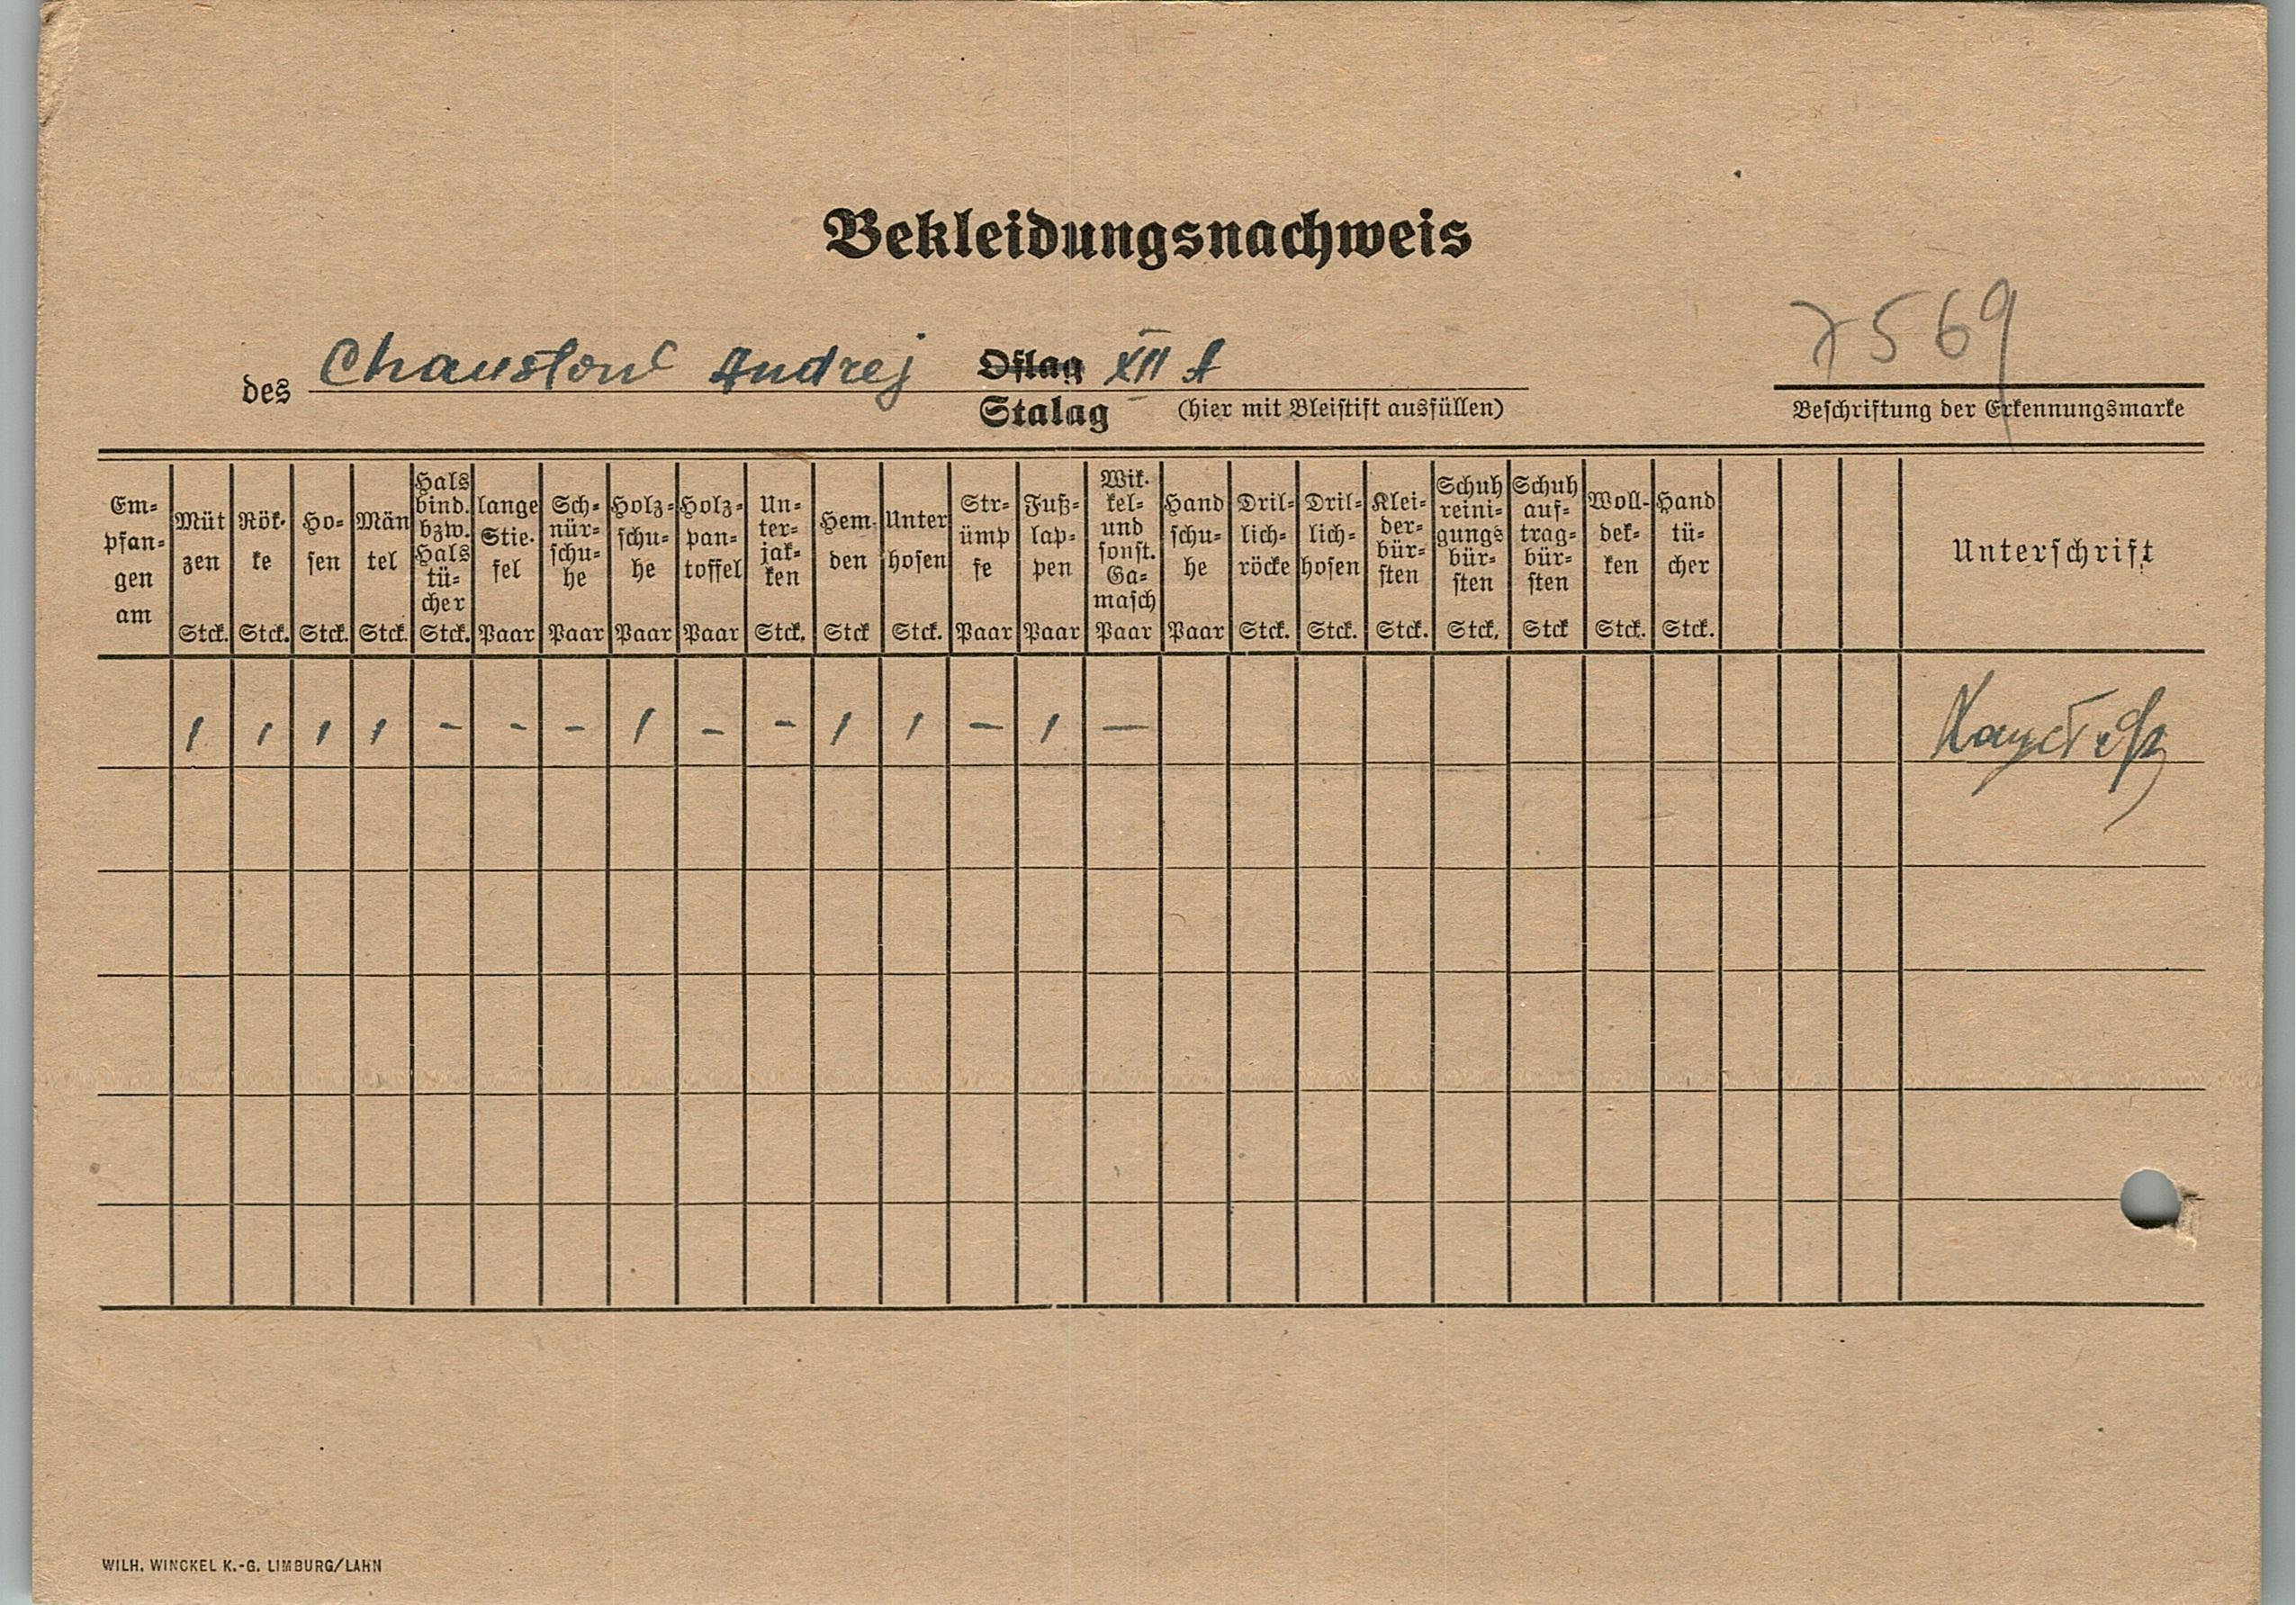 Bekleidungsnachweis
7569
des Chaustow Andrej Oflag XII A
Stalag (hier mit Bleistift ausfüllen) Beschriftung der Erkennungsmarke
Em-
pfan-
gen
am
Müt
zen
Stck.
Rök-
ke
Stck.
Ho-
sen
Stck.
Män
tel
Stck.
Hals
bind.
bzw.
Hals
tü-
cher
Stck.
lange
Stie-
fel
Paar
Sch-
nür-
schu-
he
Paar
Holz-
schu-
he
Paar
Holz-
pan-
toffel
Paar
Un-
ter-
jak-
ken
Stck.
Hem-
den
Stck
Unter
hosen
Stck.
Str-
ümp
fe
Paar
Fuß-
lap-
pen
Paar
Wik-
kel-
und
sonst.
Ga-
masch
Paar
Hand
schu-
he
Paar
Dril-
lich-
röcke
Stck.
Dril-
lich-
hosen
Stck.
Klei-
der-
bür-
sten
Stck.
Schuh
reini-
gungs
bür-
sten
Stck.
Schuh
auf-
trag-
bür-
sten
Stck
Woll-
dek-
ken
Stck.
Hand
tü-
cher
Stck.
Unterschrift
1 1 1 1 - - - 1 - - 1 1 - 1 -
WILH. WINCKEL K.-G. LIMBURG/LAHN